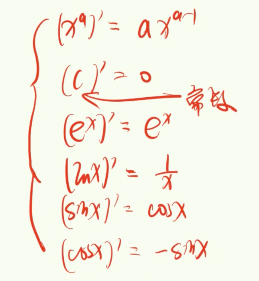 (xᵃ)' = a xᵃ⁻¹
(C)' = 0
常数
(eˣ)' = eˣ
(lnx)' = 1/x
(sinx)' = cosx
(cosx)' = -sinx